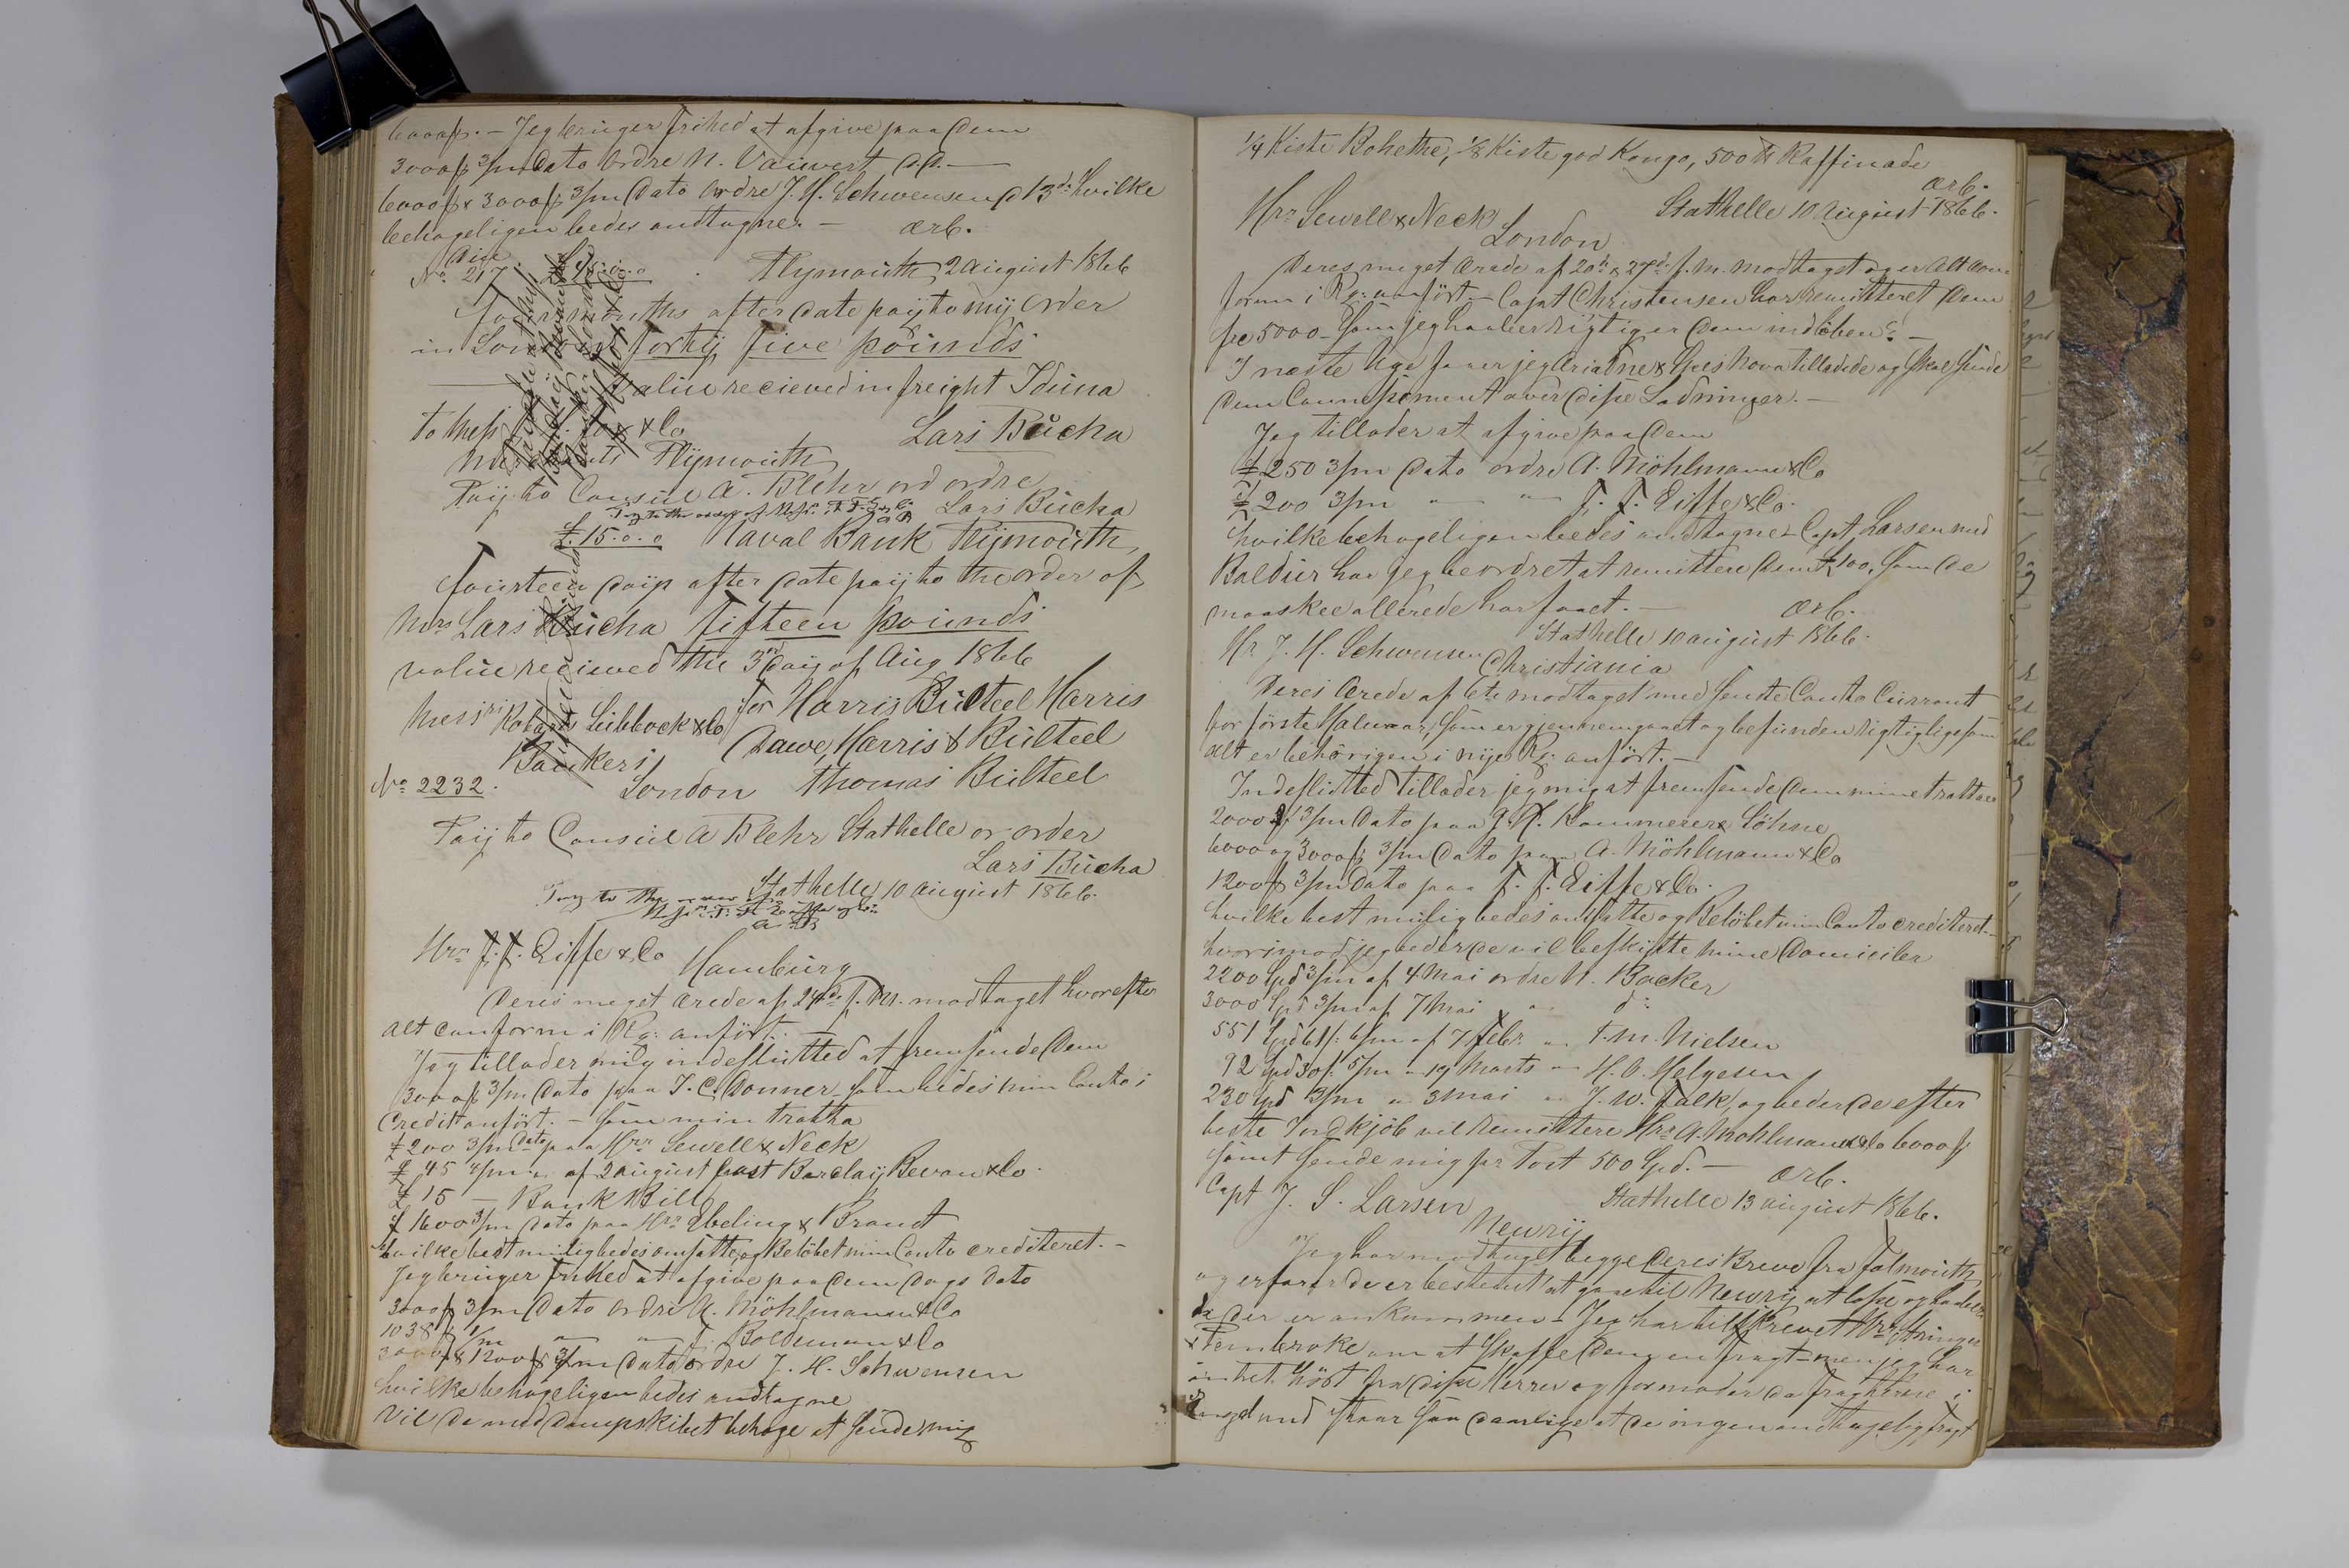 6000ƒ. – Jeg bruger frihed at afgive paa Dem
3000ƒ 3/m Dato Ordre N. Vauvert
6000ƒ & 3000ƒ 3/m Dato Ordre J. H. Schwensen hvilke
behageligen bedes andtagne. – ærb.
No. 217 £45.0.0 Plymouth 2 August 1866
Four months after date paij to mij Order
in London forty five pounds
Value recieved in freight Iduna
To Mess & Co Lars Bucha
Merchants Plijmouth
Paij to Consul A. Blehr ord ordre
Lars Bucha
Pay to the order of Messr.
£15.0.0 Naval Bank Plijmouth
fourteen daijs after date paij to the order of
Mrs Lars Bucha fifteen pounds
value recieved the 3rd Daij of Aug 1866
for Harris Bulteel Harris
Messrs Robarts Lubbock & Co
Dawe, Harris & Bulteel
Bankers
No 2232. London Thomas Bulteel
Paij to Consul A Blehr Stathelle or order
Lars Bucha
Stathelle 10 August 1866.
Pay to the
Hrr F. F. Eiffe & Co
Hamburg
Deres meget ærede af 24de f. M. modtaget hvorefter
alt conform i Rg: anført. –
Jeg tillader mig indeslutted at fremsende Dem
3000ƒ 3/m Dato paa J. C. Donner som bedes min Conto i
Credit anført. – som min tratta
£200 3/m Dato paa Hrr Sewell & Neck
£45 4/m af 2 August Barclaij Bevan & Co.
£15 – Bank Bill
ƒ1600 3/m Dato paa Hrr Ebeling & Brandt
hvilke bedst mulig bedes omsatte, og Beløbet min Conto crediteret. –
Jeg bruger Frihed at afgive paa dem Dags Dato
3000ƒ 3/m Dato Ordre A. Möhlmann & Co
1038ƒ Boldeman & Co
3000ƒ & 1200ƒ 3/m Dato Ordre J. H. Schwensen
hvilke behageligen bedes andtagne
Vil De med Dampskibet behage at sende mig
1/4 Kiste Bohethe, 1/8 Kiste god Kongo, 500 ℔ Raffinade
ærb.
Hrr Sewell & Neck Stathelle 10 August 1866.
London
Deres meget ærede af 20de & 27de f. m. modtaget og er alt con
form i Rg: anført. – Capt Christensen har remitteret Dem
5000 – som jeg haaber rigtig er Dem indløben. –
I næste Uge faaer jeg Ariadne & Spes Nova tilladede og skal sende
Dem Connossement over disse Ladninger. –
Jeg tillader at afgive paa Dem
£250 3/m Dato ordre A. Möhlmann & Co
£200 3/m " " F. F. Eiffe & Co.
hvilke behageligen bedes andtagne – Capt. Larsen med
Baldur har jeg beordret at remittere Dem £100, som De
maaskee allerede har faaet. – ærb.
Hr J. H. Schwensen Stathelle 10 August 1866.
Christiania
Deres ærede af 6te modtaget med sendte Conto Currant
for første Halvaar, som er gjennemgaaet og befunden rigtig ligesom
alt er behørigen i nije Rg: anført. –
Indeslutted tillader jeg mig at fremsende Dem mine trattaer
2000 3/m Dato paa G. H. Kaemmerer Söhne
6000 og 3000ƒ 3/m Dato paa A. Möhlmann & Co
1200ƒ 3/m Dato paa F. F. Eiffe & Co.
hvilke best mulig bedes omsatte og Beløbet min Conto crediteret –
hvorimod jeg beder De vil beskijtte mine Domiciler
2200 Spd 3/m af 4 Mai ordre N. Backer
3000 Spd 3/m af 7 Mai " do
551 Spd 61ſ: 6/m af 7 Febr. " F. M. Nielsen
92 Spd 30ſ: 5/m " 19 Marts " H. O. Helgesen
230 Spd 3/m " 3 Mai " J. W. Falk, og beder De efter
beste Indkjøb vil remittere Hrr A. Möhlmann & Co 6000ƒ
samt sende mig pr Post 500 Spd. – ærb.
Capt J. S. Larsen Stathelle 13 August 1866.
Newrij
Jeg har modtaget begge Deres Breve fra Falmouth
og erfarer De er bestemt at gaae til Newrij at losse og haaber
De der er ankommen – Jeg har tilskrevet Hrr
& Pembroke om at skaffe Dem en fragt – men jeg har
intet hørt fra disse Herrer og formoder da fragterne i
England staar saa daarlige at De ingen andtagelig fragt